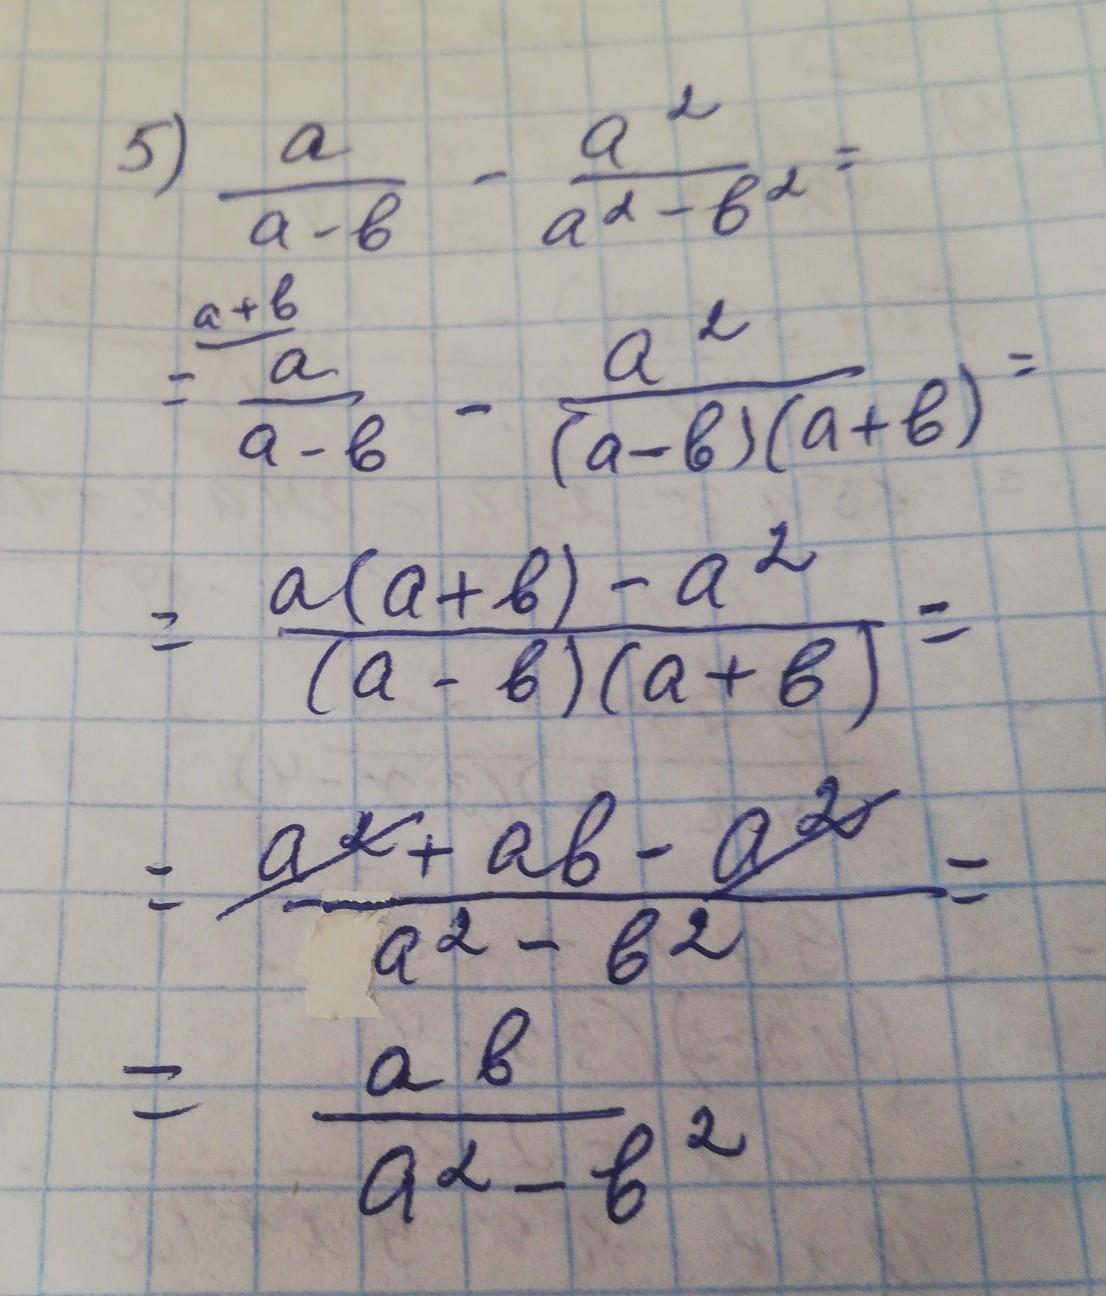 5) a/(a-в) - a²/(a²-в²) =
= a/(a-в) ^(a+в) - a²/((a-в)(a+в)) =
= (a(a+в)-a²)/((a-в)(a+в)) =
= (a²+aв-a²)/(a²-в²) =
= aв/(a²-в²)